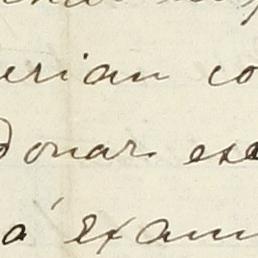 erian co
donar ese
a' Exam